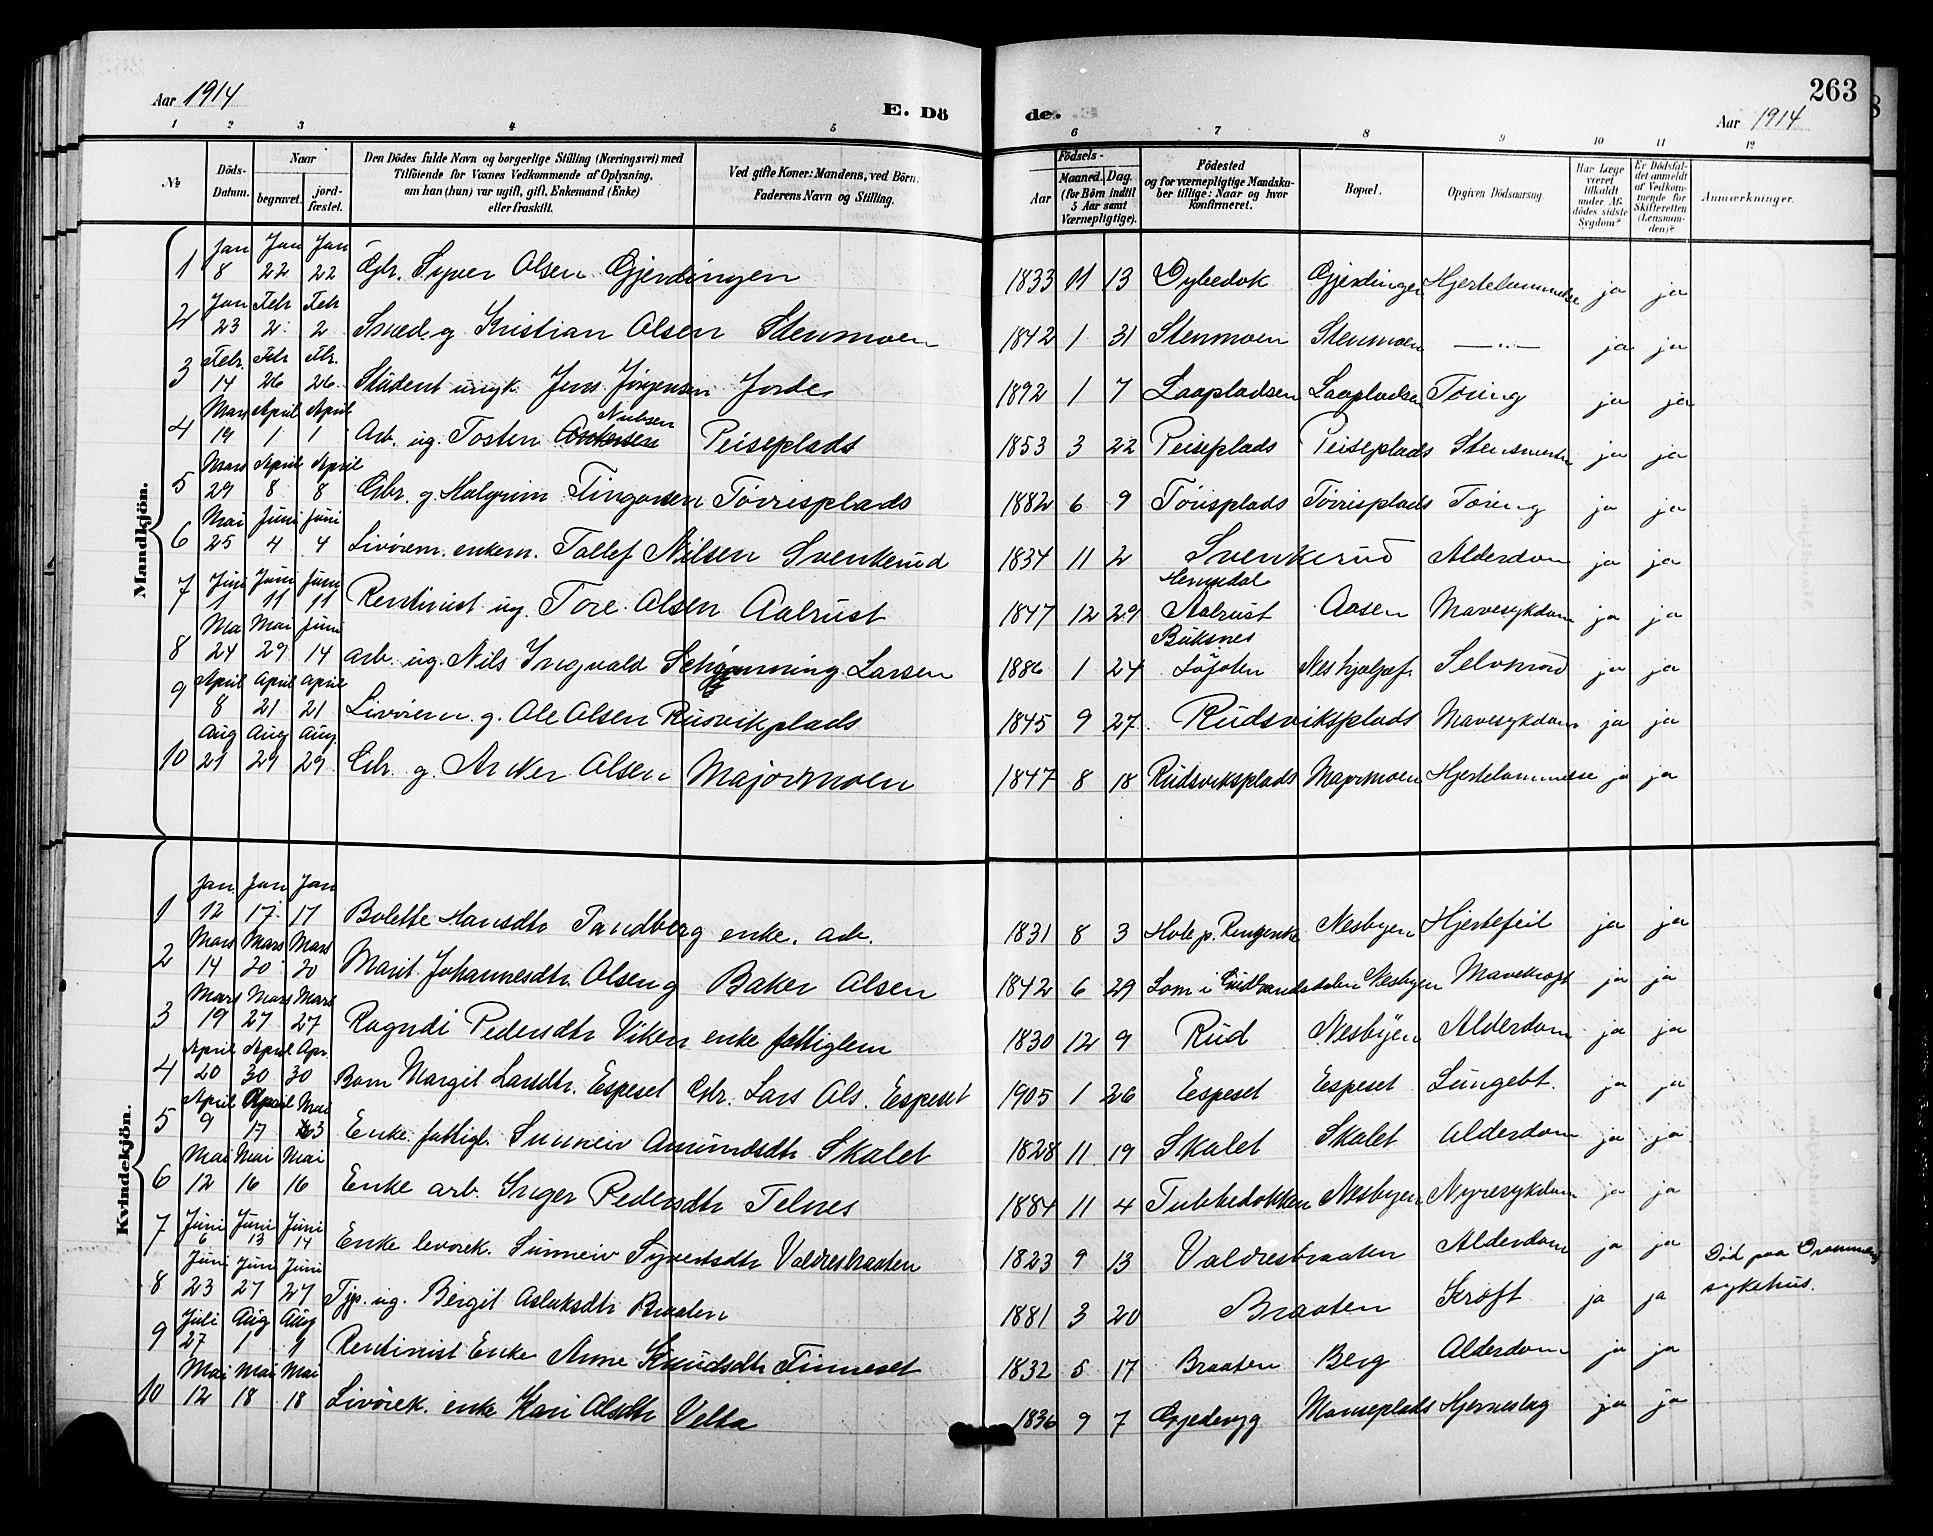 Aar 1914
E. Dö
de.
263
Aar 1914
1 2 3 4 5 6 7 8 9 10 11 12
No
Döds-
Datum.
Naar
begravet.
jord-
fæstet.
Den Dödes fulde Navn og borgerlige Stilling (Næringsvei) med
Tilföiende for Voxnes Vedkommende af Oplysning,
om han (hun) var ugift, gift, Enkemand (Enke)
eller fraskilt.
Ved gifte Koner: Mandens, ved Börn:
Faderens Navn og Stilling.
Födsels-
Aar
Maaned. Dag.
(for Börn indtil
5 Aar samt
Værnepligtige).
Födested
og for værnepligtige Mandska-
ber tillige: Naar og hvor
konfirmeret.
Bopæl.
Opgiven Dödsaarsag.
Har Læge
været
tilkaldt
under Af-
dödes sidste
Sygdom?
Er Dödsfal-
det anmeldt
af Vedkom-
mende for
Skifteretten
(Lensman-
den)?
Anmærkninger.
Mandkjön.
1 Jan 8 Jan 22 Jan 22 Gbr. Syver Olsen Gjerdingen 1833 11 13 Gjerdingen Hjertelammelse ja ja
2 Jan 23 Febr 2 Febr 2 Smed g Kristian Olsen Stenmoen 1842 1 31 Stenmoen Stenmoen —"— ja ja
3 Febr. 14 Febr 26 Febr. 26 Student Jens Jörgensen Jorde 1892 1 7 Laapladsen Laapladsen Tæring ja ja
4 Mars 19 April 1 April 1 Arb. ug. Tosten Nielsen Peiseplads 1853 3 22 Peiseplads Peiseplads ja ja
5 Mars 29 April 8 April 8 Gbr. g. Halgrim Fingarsen Törrisplads 1882 6 9 Törisplads Törrisplads Tæring ja ja
6 Mai 25 Juni 4 Juni 4 Livörem. enkem. Tollef Nilsen Svenkerud 1834 11 2 Svenkerud Alderdom ja ja
7 Juni 1 Juni 11 Juni 11 Rentinist ug. Tore Olsen Aalrust 1847 12 29 Hemsedal Aalrust Aasen Mavesykdom ja ja
8 Mai 24 Mai 29 Juni 14 arb. ug. Nils Ingvald Schjønning Larsen 1886 1 24 Buksnes Lofoten Nes Selvmord ja ja
9 April 8 April 21 April 21 Livörem. g. Ole Olsen Rusvikplads 1845 9 27 Rudsviksplads Mavesykdom ja ja
10 Aug 21 Aug 29 Aug 29 Gbr. g. Anker Olsen Majormoen 1847 8 18 Rudsviksplads Majormoen Hjertelammelse ja ja
Kvindekjön.
1 Jan. 12 Jan 17 Jan 17 Bolette Hansdtr Sandberg enke. arb. 1831 8 3 Hole p. Ringerike Nesbyen Hjertefeil ja ja
2 Mars 14 Mars 20 Mars 20 Marit Johannesdtr. Olsen g Baker Olsen 1842 6 29 Lom i Gudbrandsdalen Nesbyen Mavekræft ja ja
3 Mars 19 Mars 27 Mars 27 Ragndi Pedersdtr Viken enke fattiglem 1830 12 9 Rud Nesbyen Alderdom ja ja
4 April 20 April 30 Apr. 30 Barn Margit Larsdtr. Espeset Gbr. Lars Ols. Espeset 1905 1 26 Espeset Espeset Lungebt. ja ja
5 April 9 April 17 Mai 3 Enke fattigl. Sunneiv Amundsdtr Skalet 1828 11 19 Skalet Skalet Alderdom ja ja
6 Mai 12 Mai 16 Mai 16 Enke arb. Inger Pedersdtr Telnes 1884 11 4 Tubbedokken Nesbyen Nyresykdom ja ja
7 Juni 6 Juni 13 Juni 14 Enke levörek. Sunneiv Syversdtr Valdresbraaten 1823 9 13 Valdresbraaten Alderdom ja ja
8 Juni 23 Juni 27 Juni 27 Tjp. ug. Bergit Aslaksdtr Braaten 1881 3 20 Braaten Kræft ja ja Död paa Drammens sykehus.
9 Juli 27 Aug 1 Aug 1 Rentinist Enke Anne Knudsdtr Finneset 1832 5 17 Braaten Berg Alderdom ja ja
10 Mai 12 Mai 18 Mai 18 Livörek. enke Kari Olsdtr Vella 1836 9 7 Gjederygg Hjerneslag ja ja